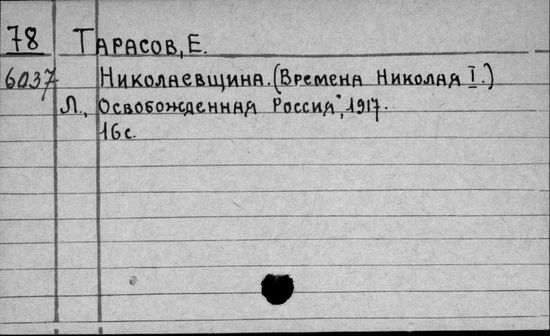 78 Тарасов, Е.
6037 Николаевщина. (Времена Николая I.)
Л., Освобожденная Россия", 1917.
16 с.